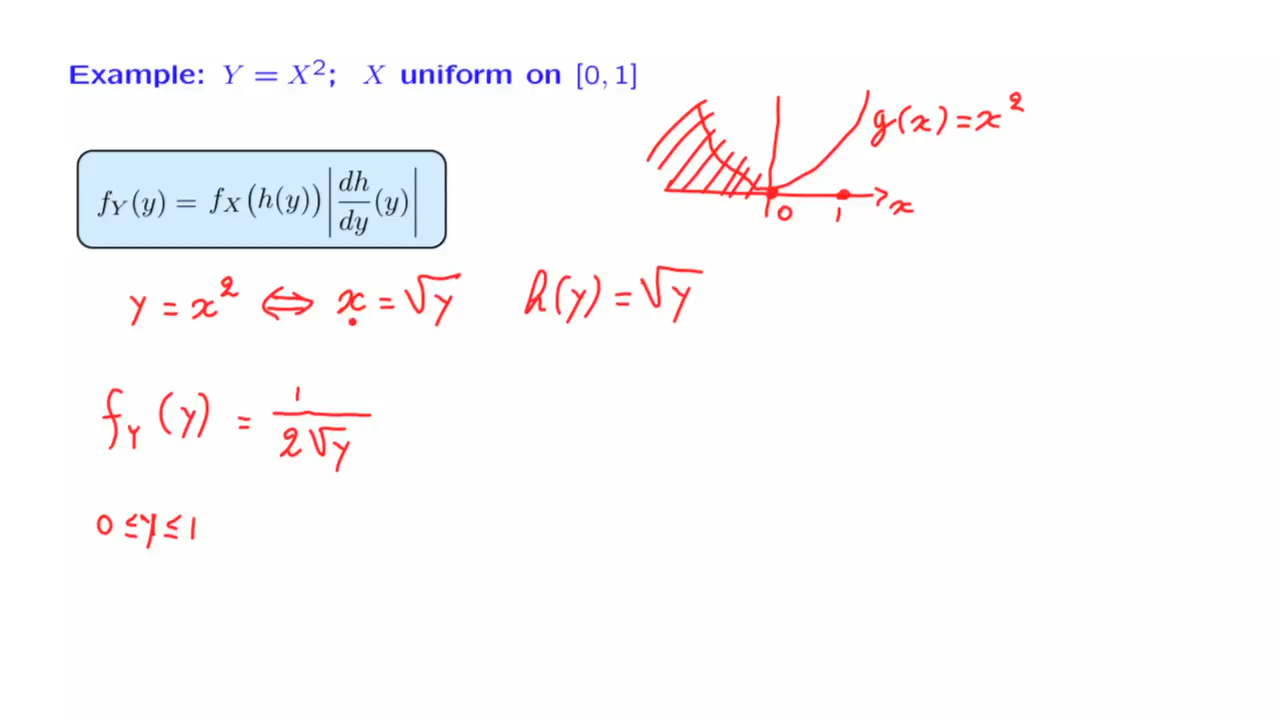 Example: Y = X²; X uniform on [0, 1]
g(x) = x²
0 1 x
f_Y(y) = f_X(h(y)) |dh/dy (y)|
y = x² ⇔ x = √y h(y) = √y
f_Y(y) = 1/(2√y)
0 ≤ y ≤ 1